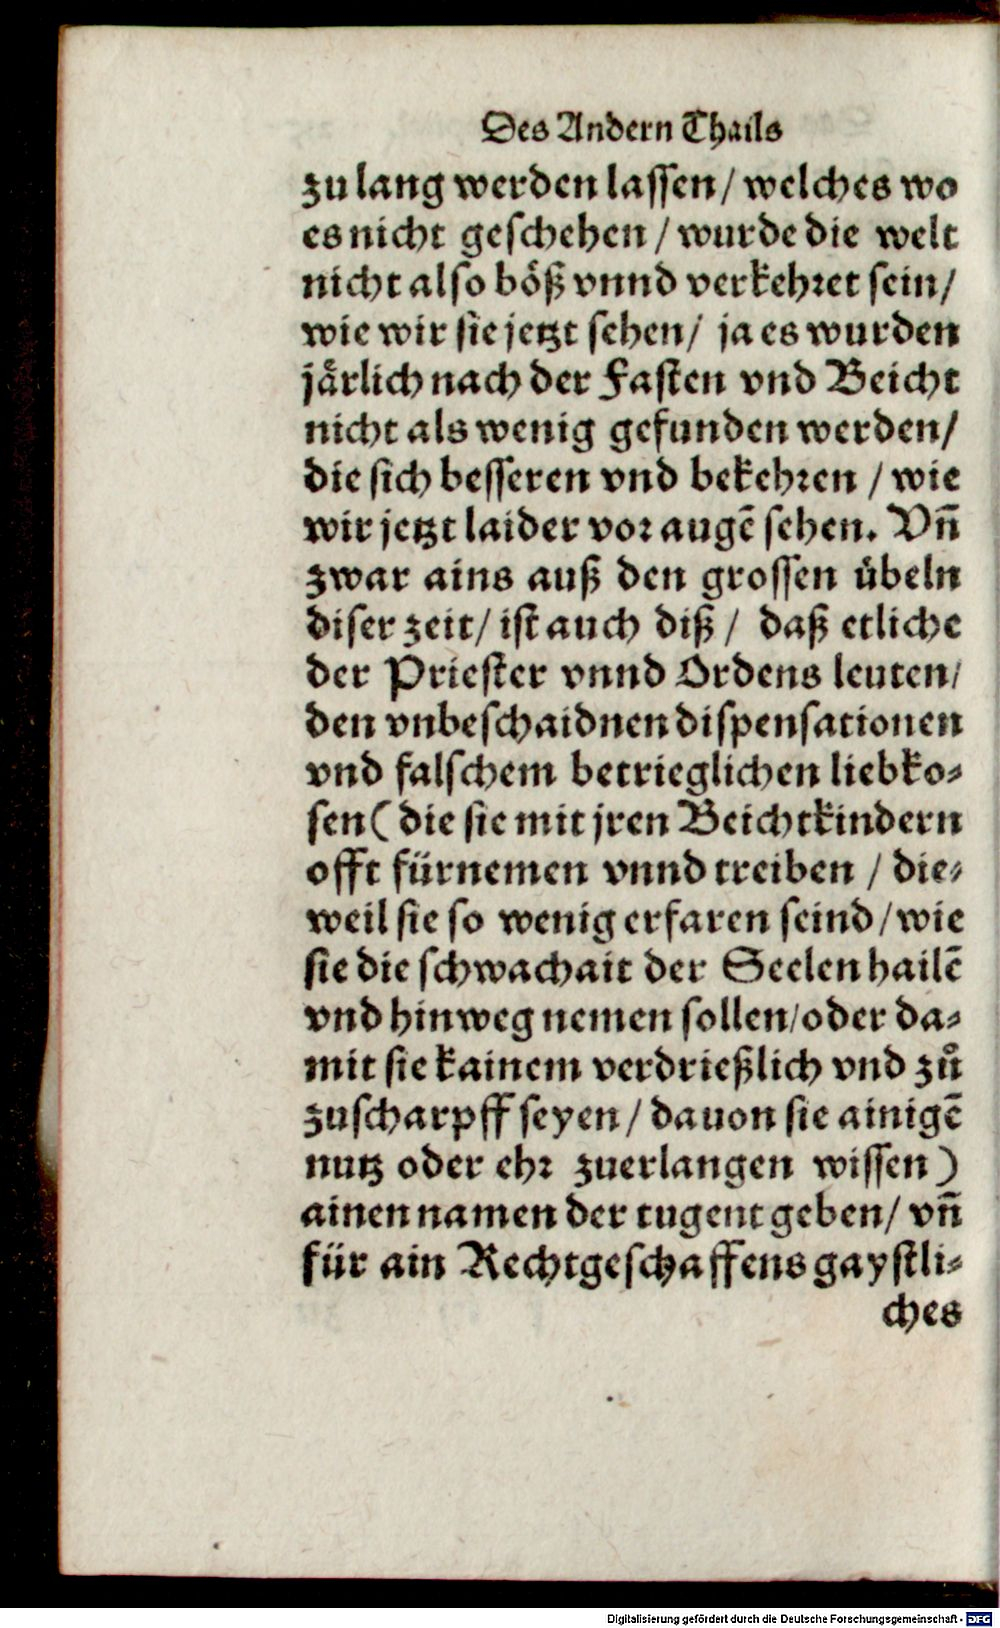 Des Andern Thails
zu lang werden lassen / welches wo
es nicht geschehen / wurde die welt
nicht also böß vnnd verkehret sein /
wie wir sie jetzt sehen / ja es wurden
järlich nach der Fasten vnd Beicht
nicht als wenig gefunden werden /
die sich besseren vnd bekehren / wie
wir jetzt laider vor augē sehen. Vnn̄
zwar ains auß den grossen übeln
diser zeit / ist auch diß / daß etliche
der Priester vnnd Ordens leuten /
den vnbeschaidnen dispensationen
vnd falschem betrieglichen liebko⸗
sen ( die sie mit jren Beichtkindern
offt fürnemen vnnd treiben / die⸗
weil sie so wenig erfaren seind / wie
sie die schwachait der Seelen hailē
vnd hinweg nemen sollen / oder da⸗
mit sie kainem verdrießlich vnd zů
zuscharpff seyen / dauon sie ainigē
nutz oder ehr zuerlangen wissen )
ainen namen der tugent geben / vn̄
für ain Rechtgeschaffens gaystli⸗
ches
Digitalisierung gefördert durch die Deutsche Forschungsgemeinschaft - DFG